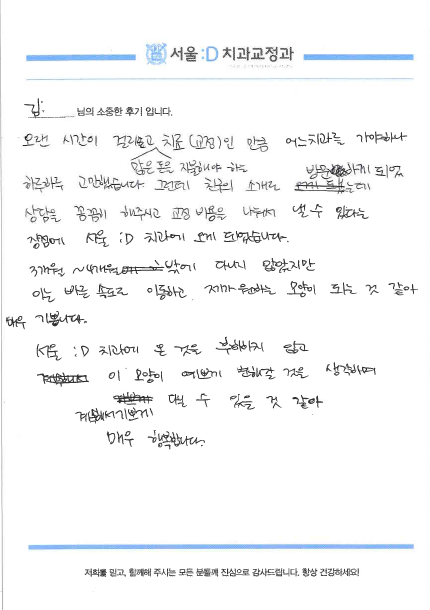 서울 :D 치과교정과
김: 님의 소중한 후기 입니다.
오랜 시간이 걸리고 치료(교정)인 만큼 어느치과를 가야하나
많은 돈을 지불해야 하는
하루하루 고민했습니다 그런데 친구의 소개로 방문하게 되었는데
상담을 꼼꼼히 해주시고 교정 비용을 나눠서 낼 수 있다는
장점에 서울 :D 치과에 오게 되었습니다.
3개월 ~4개월 밖에 다니지 않았지만
이는 빠른 속도로 이동하고 제가 원하는 모양이 되는 것 같아
매우 기쁩니다.
서울 :D 치과에 온 것을 후회하지 않고
이 모양이 예쁘게 변해갈 것을 생각하며
계속해서 기쁘게 다닐 수 있을 것 같아
매우 행복합니다.
저희를 믿고, 함께해 주시는 모든 분들께 진심으로 감사드립니다. 항상 건강하세요!